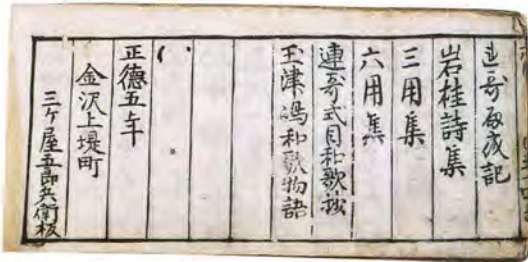 連哥両成記
岩桂詩集
三用集
六用集
連哥式目和歌抜
玉津嶋和歌物語
正徳五年
金沢上堤町
三ケ屋五郎兵衛板